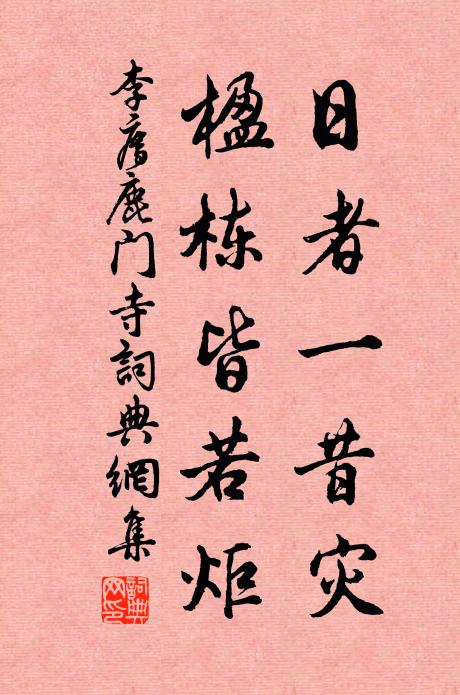 日者一昔灾
楹栋皆若炬
李廌鹿门寺詞典網集
詞典网印